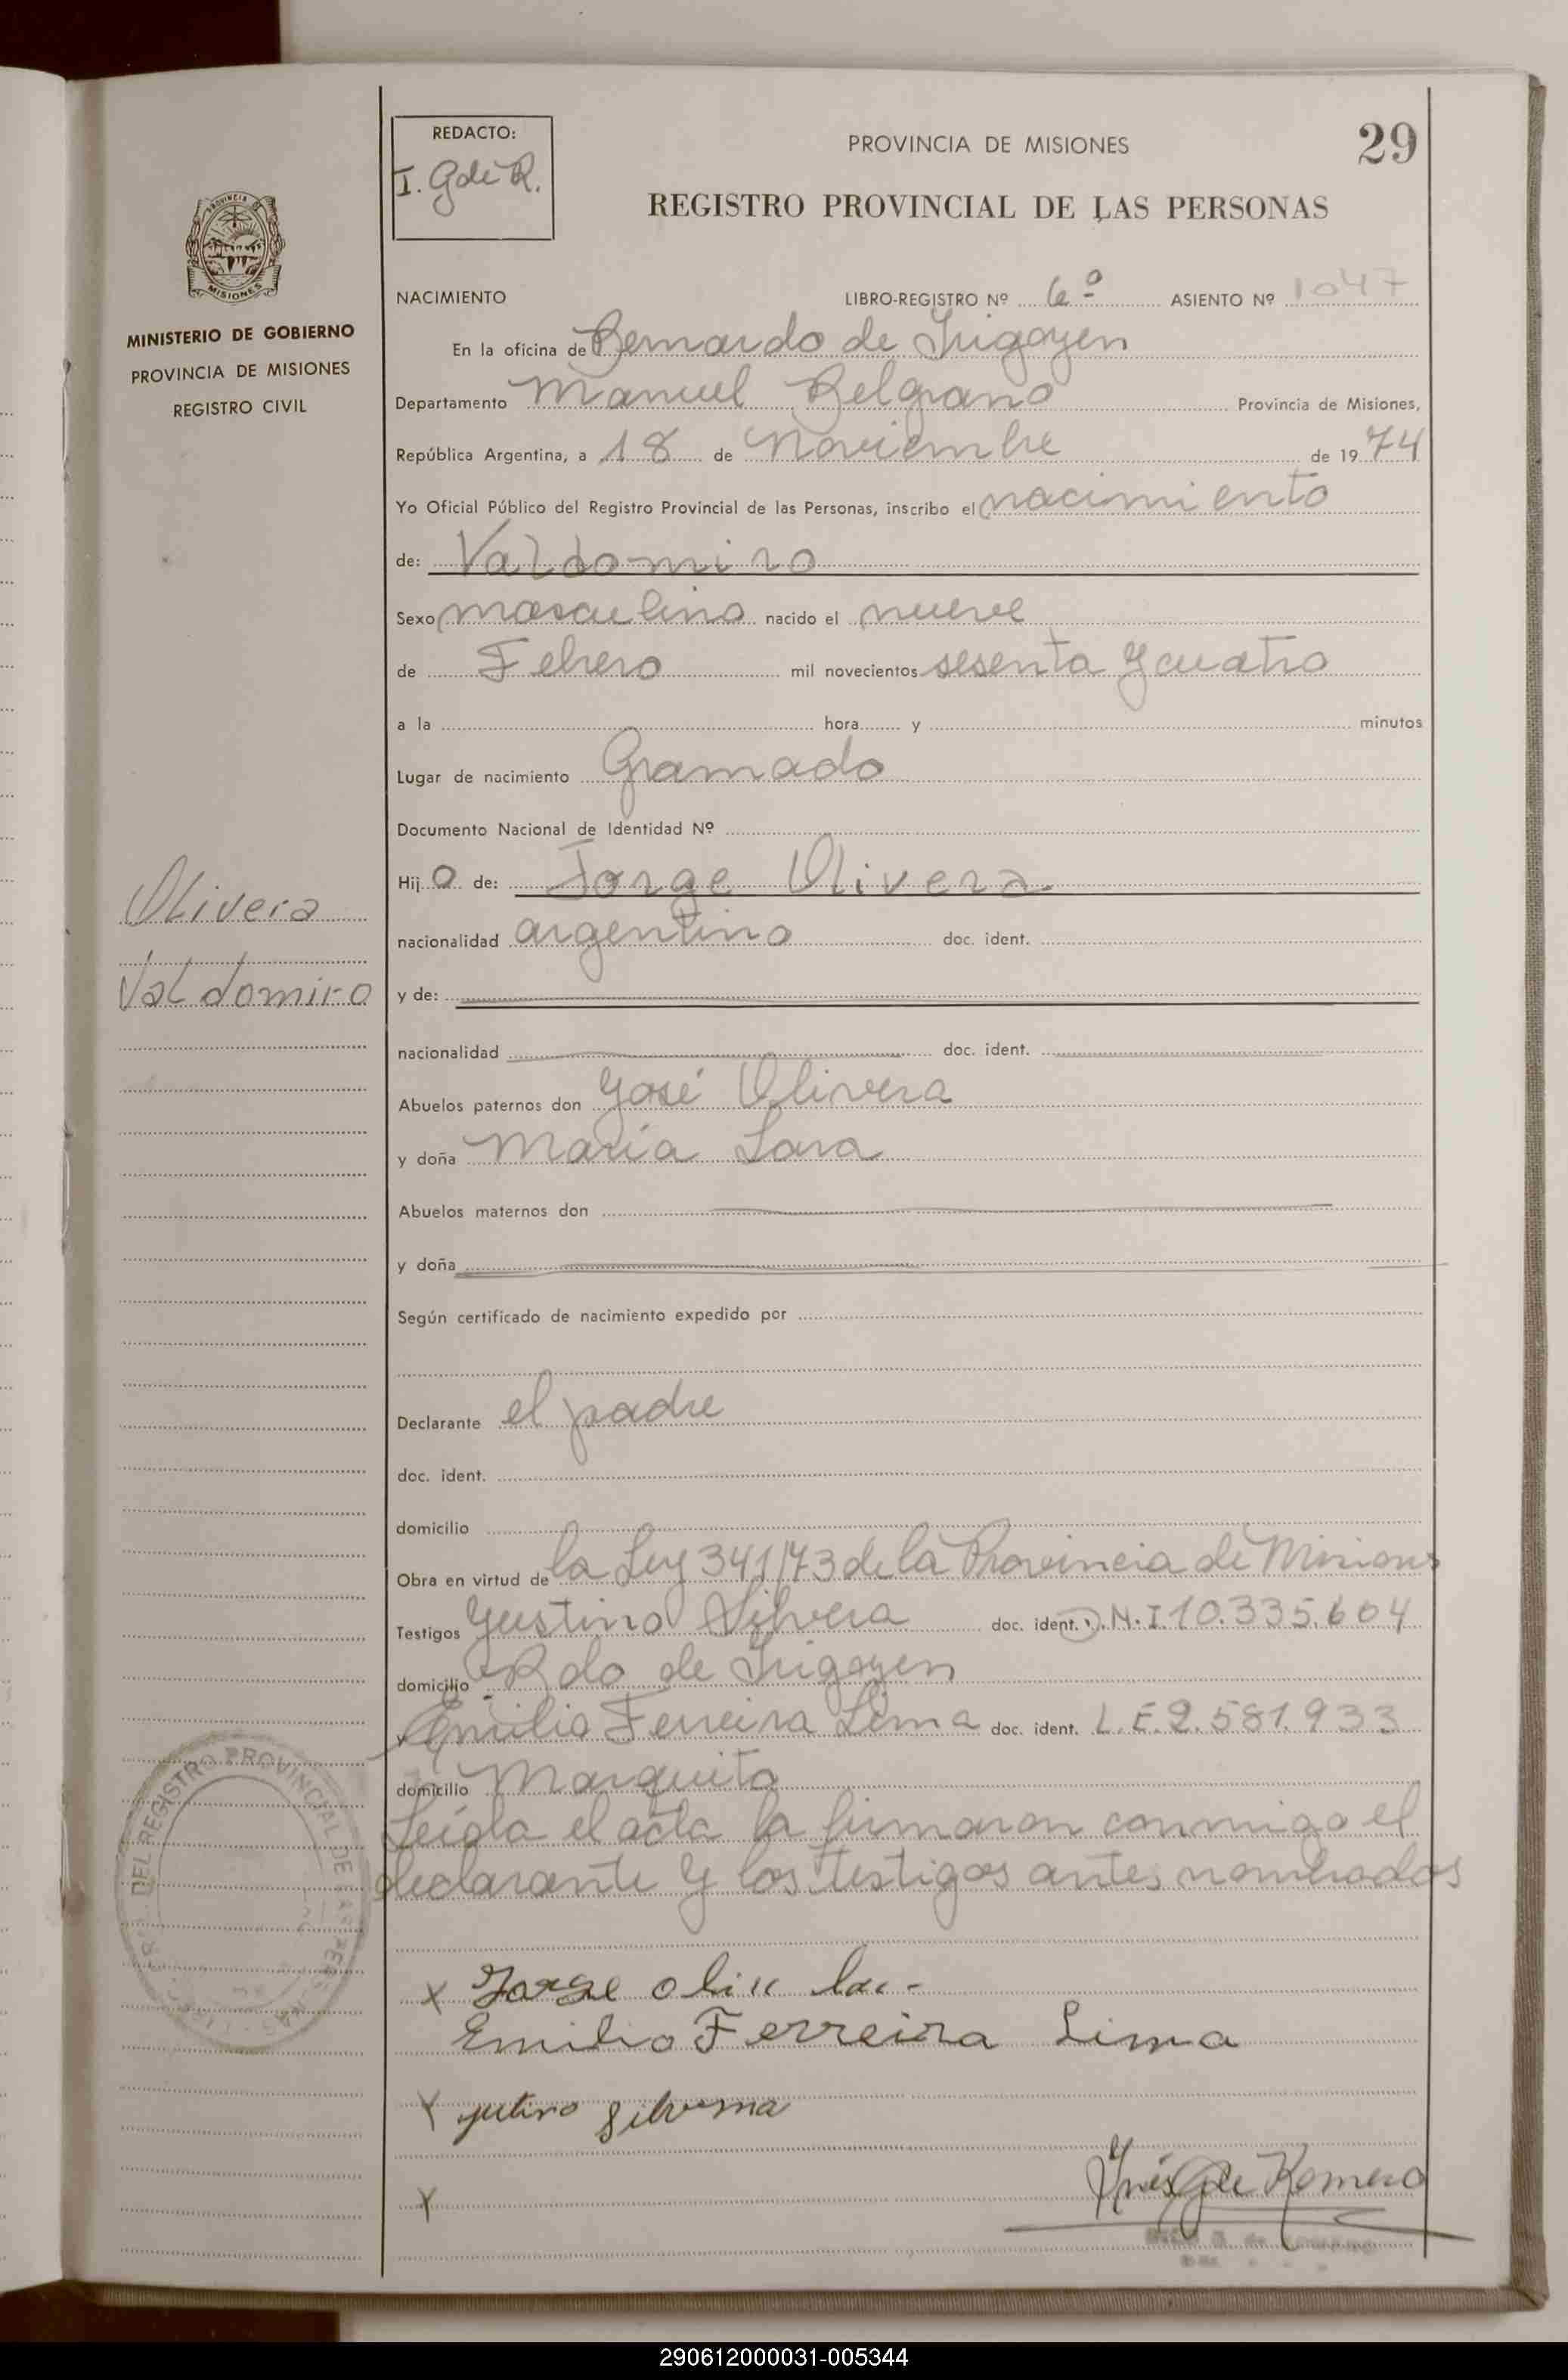 29
REDACTO:
I. G de R.
PROVINCIA DE MISIONES
REGISTRO PROVINCIAL DE LAS PERSONAS
PROVINCIA DE
MISIONES
MINISTERIO DE GOBIERNO
PROVINCIA DE MISIONES
REGISTRO CIVIL
NACIMIENTO LIBRO-REGISTRO Nº 6º ASIENTO Nº 1047
En la oficina de Bernardo de Irigoyen
Departamento Manuel Belgrano Provincia de Misiones,
República Argentina, a 18 de Noviembre de 1974
Yo Oficial Público del Registro Provincial de las Personas, inscribo el nacimiento
de: Valdomiro
Sexo masculino nacido el nueve
de Febrero mil novecientos sesenta y cuatro
a la hora y minutos
Lugar de nacimiento Gramado
Documento Nacional de Identidad Nº
Hijo de: Jorge Olivera
nacionalidad argentino doc. ident.
y de:
nacionalidad doc. ident.
Abuelos paternos don José Olivera
y doña María Lara
Abuelos maternos don
y doña
Según certificado de nacimiento expedido por
Declarante el padre
doc. ident.
domicilio
Obra en virtud de la Ley 341/73 de la Provincia de Misiones
Testigos Justino Silvera doc. ident. D.N.I 10.335.604
domicilio Bdo de Irigoyen
y Emilio Ferreira Lima doc. ident. L.E. 2.581.933
domicilio Marquita
Leída el acta la firmaron conmigo el
declarante y los testigos antes nombrados
Olivera
Valdomiro
DEL REGISTRO PROVINCIAL DE LAS PERSONAS
X Jorge
Emilio Ferreira Lima
X
Inés G de Romero
X
290612000031-005344